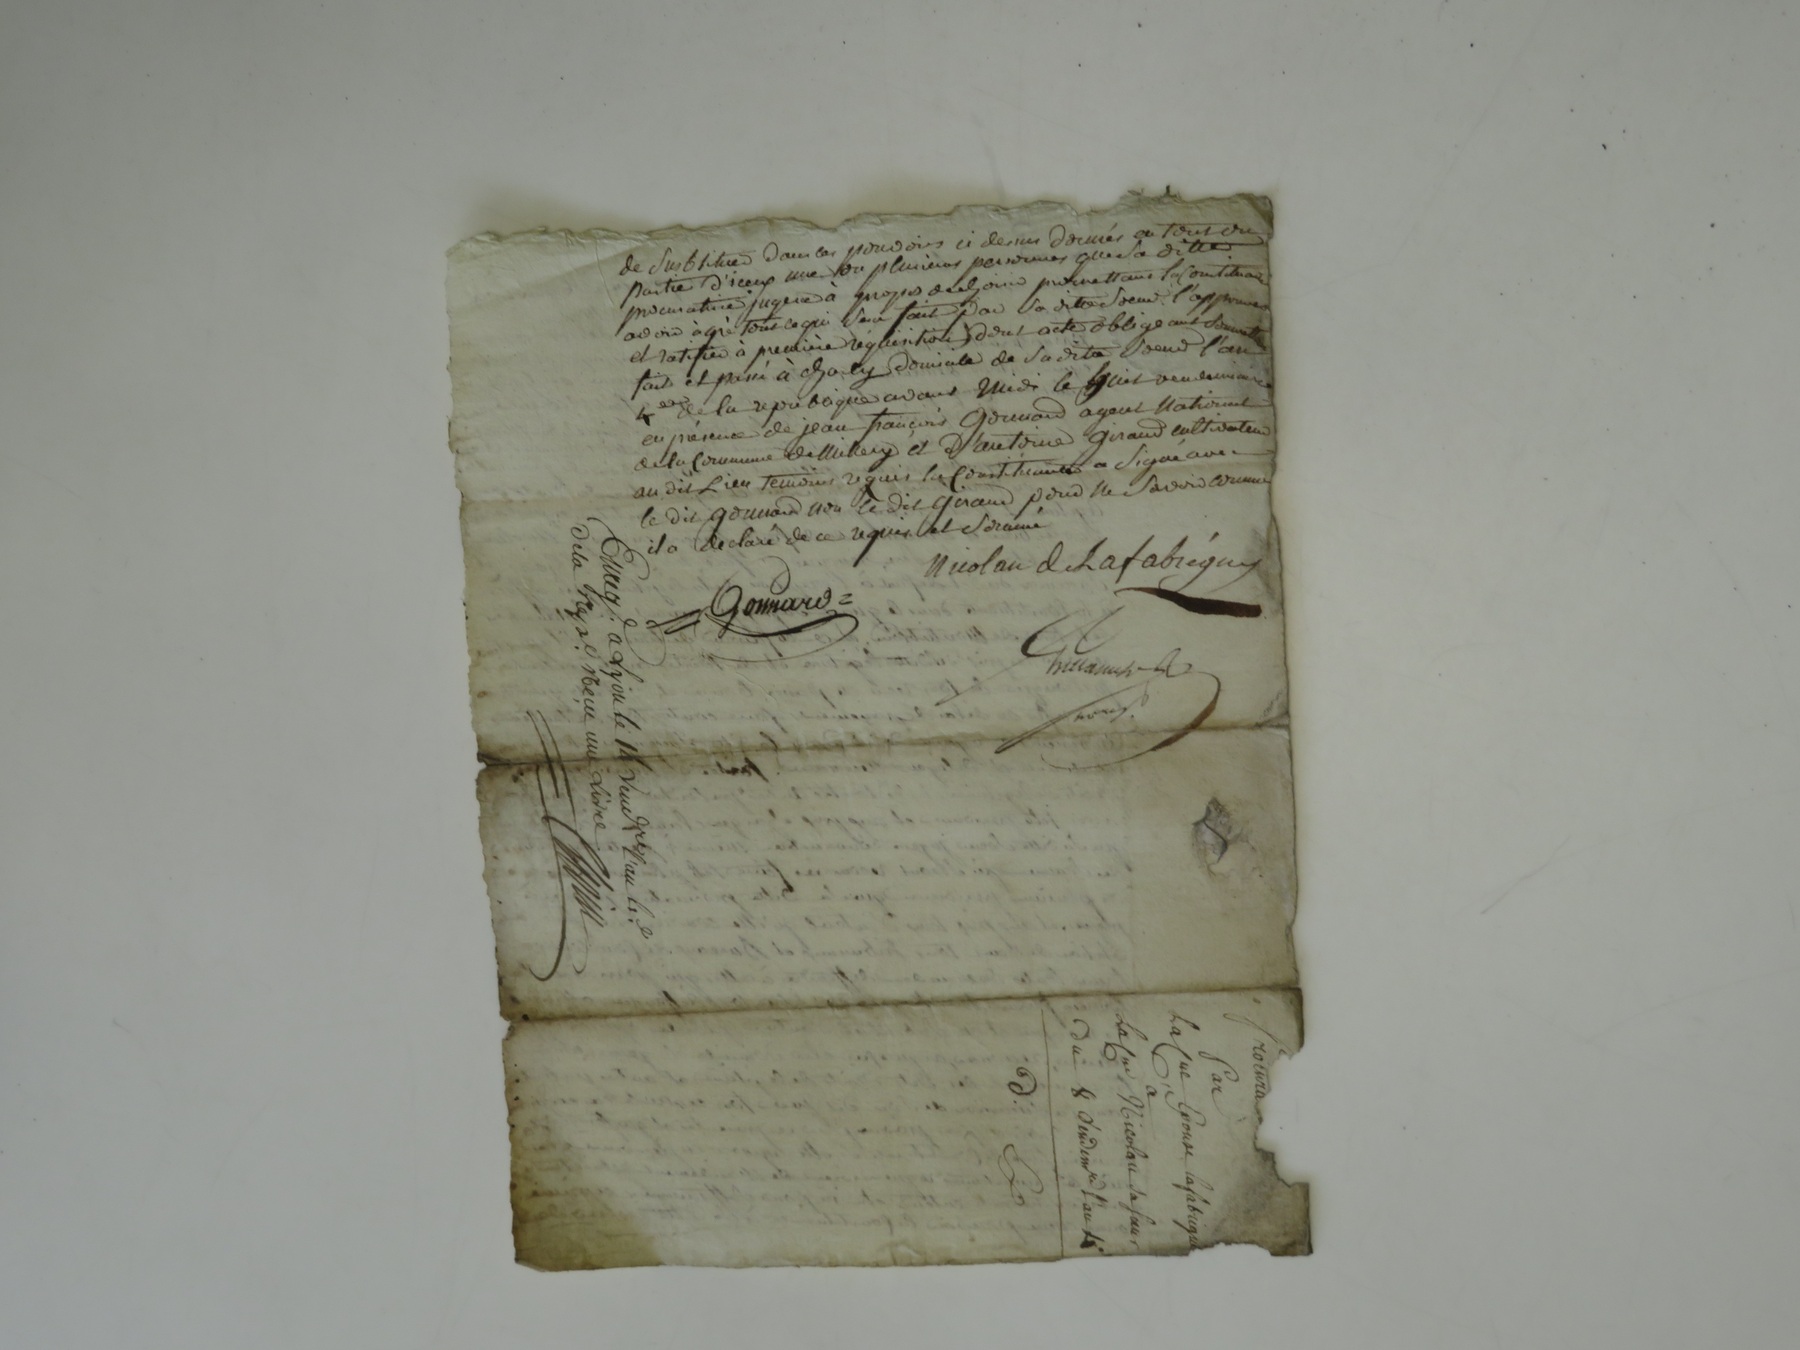 de substituer dans les pouvoirs ci dessus donnés en tout ou
partie d'iceux une ou plusieurs personnes que sa ditte
procuratrice jugera à propos de choisir promettant la Constituante
avoir à gré tout ce qui sera fait par sa ditte soeur l'approuver
et ratifier à première réquisition dont acte obligeant
fait et passé à Charly domicile de sa dite soeur l'an
4eme de la republique avant midi le huit vendemiaire
en présence de jean françois Gonnard agent National
de la Commune de Millery et D'antoine Giraud cultivateur
au dit Lieu temoins requis la Constituante a signé avec
le dit gonnard non le dit Giraud pour ne savoir comme
il a déclaré de ce requis et sommé
Nicolau de Lafabrégue
Gonnard
Enreg. à Lyon le 14 Vendre l'an 4.e
de la Rep. Reçu une Livre
Procura
Par
La Cne Epouse Lafabrigue
à
La Cne Nicolau sa Soeur
du 8 Vendem.re l'an 4e